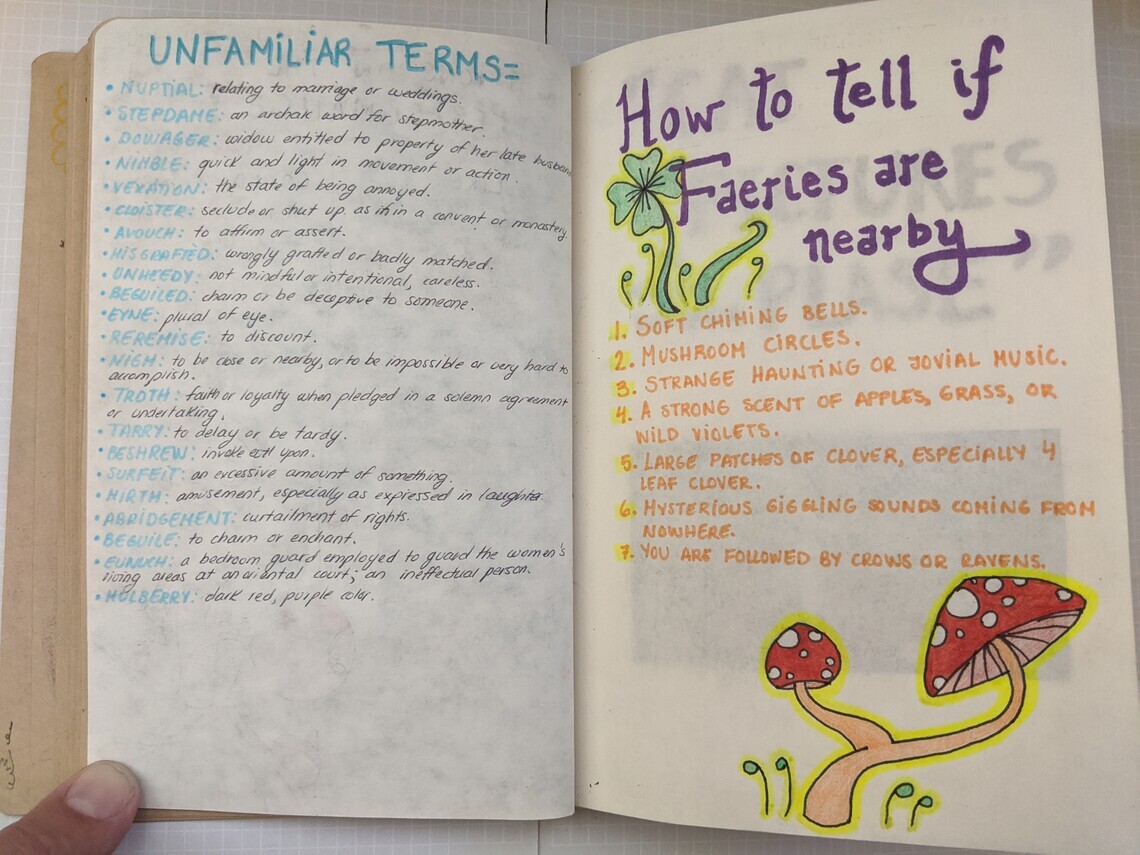 UNFAMILIAR TERMS=
• NUPTIAL: relating to marriage or weddings.
• STEPDAME: an archaic word for stepmother.
• DOWAGER: widow entitled to property of her late husban
• NIMBLE: quick and light in movement or action.
• VEXATION: the state of being annoyed.
• CLOISTER: seclude or shut up, as if in a convent or monastery.
• AVOUCH: to affirm or assert.
• MISGRAFFÈD: wrongly grafted or badly matched.
• UNHEEDY: not mindful or intentional, careless.
• BEGUILED: charm or be deceptive to someone.
• EYNE: plural of eye.
• REREMISE: to discount.
• NIGH: to be close or nearby, or to be impossible or very hard to
accomplish.
• TROTH: faith or loyalty when pledged in a solemn agreement
or undertaking.
• TARRY: to delay or be tardy.
• BESHREW: invoke evil upon.
• SURFEIT: an excessive amount of something.
• MIRTH: amusement, especially as expressed in laughter.
• ABRIDGEMENT: curtailment of rights.
• BEGUILE: to charm or enchant.
• EUNUCH: a bedroom guard employed to guard the women's
living areas at an oriental court; an ineffectual person.
• MULBERRY: dark red, purple color.
How to tell if
Faeries are
nearby
1. SOFT CHIMING BELLS.
2. MUSHROOM CIRCLES.
3. STRANGE HAUNTING OR JOVIAL MUSIC.
4. A STRONG SCENT OF APPLES, GRASS, OR
WILD VIOLETS.
5. LARGE PATCHES OF CLOVER, ESPECIALLY 4
LEAF CLOVER.
6. MYSTERIOUS GIGGLING SOUNDS COMING FROM
NOWHERE.
7. YOU ARE FOLLOWED BY CROWS OR RAVENS.